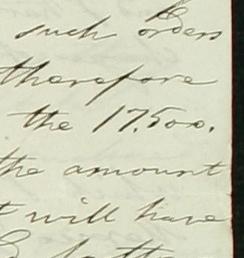 such orders
therefore
the 17.500.
the amount
t will have